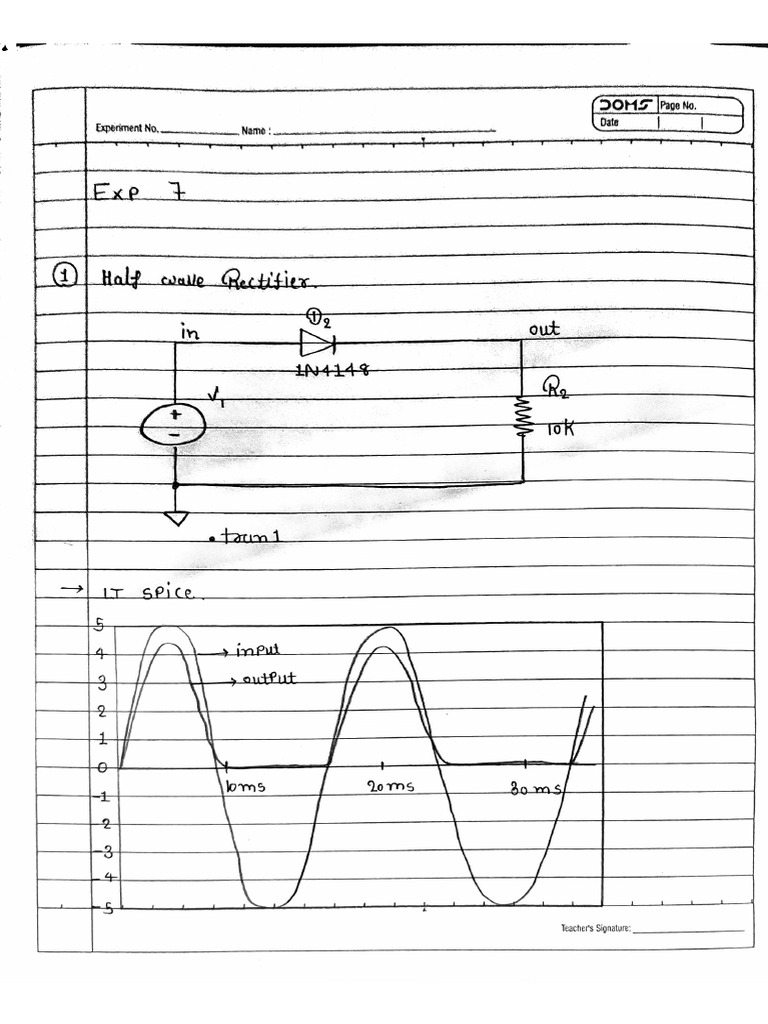 DOMS Page No.
Experiment No. Name :
Date
Exp 7
① Half wave Rectifier.
①2
in out
1N4148
V1 R2
+ 10K
-
.tran 1
→ LT spice.
5
4 → input
3 → output
2
1
0
10ms 20ms 30ms
-1
-2
-3
-4
-5
Teacher's Signature: